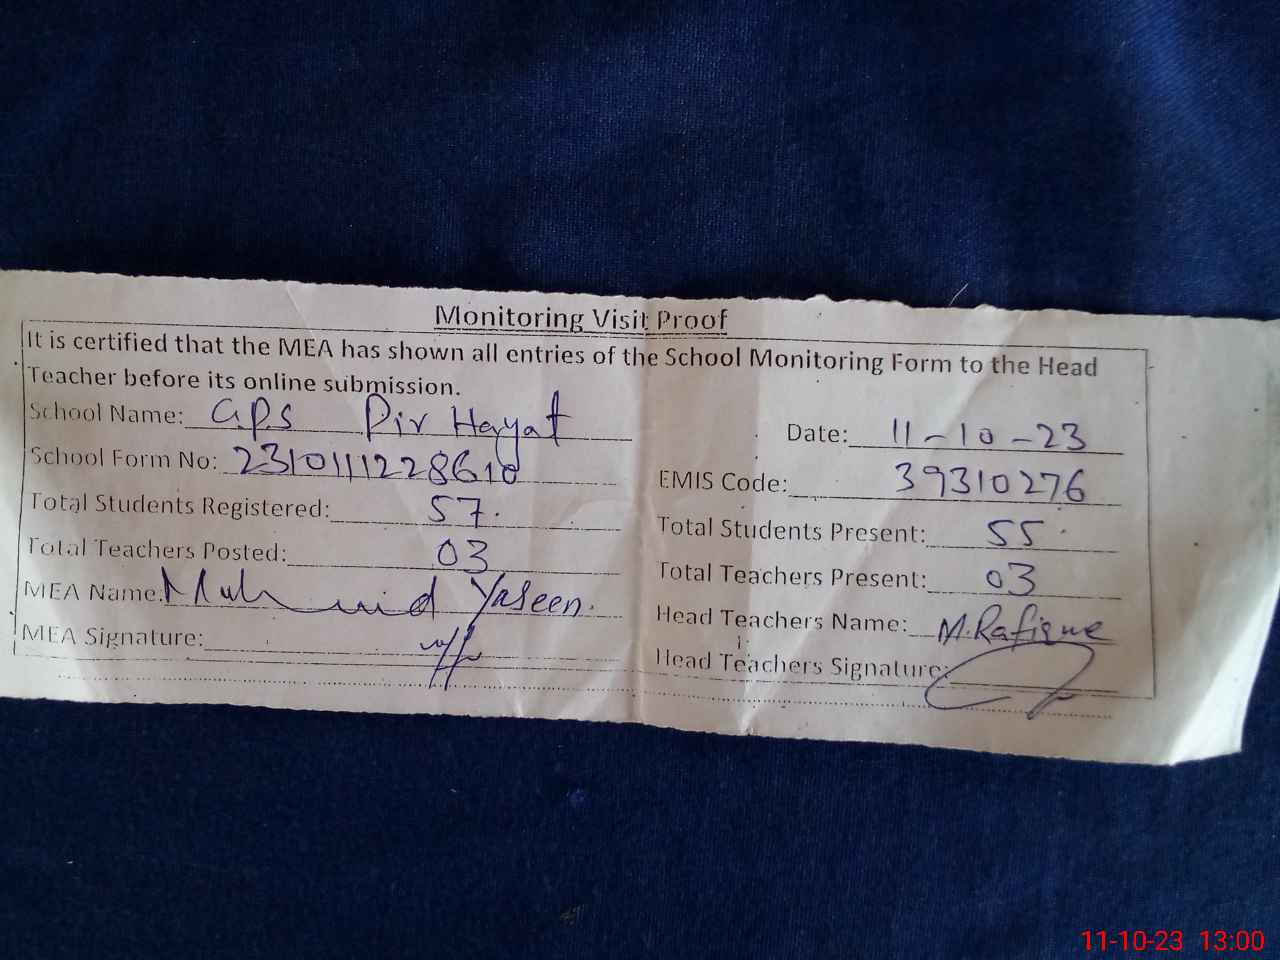 Monitoring Visit Proof
It is certified that the MEA has shown all entries of the School Monitoring Form to the Head
Teacher before its online submission.
School Name: G.P.S Pir Hayat
Date: 11-10-23
School Form No: 2310111228610
EMIS Code: 39310276
Total Students Registered: 57.
Total Students Present: 55
Total Teachers Posted: 03
Total Teachers Present: 03
MEA Name: Yaseen.
Head Teachers Name: M.Rafique
MEA Signature:
Head Teachers Signature:
11-10-23 13:00